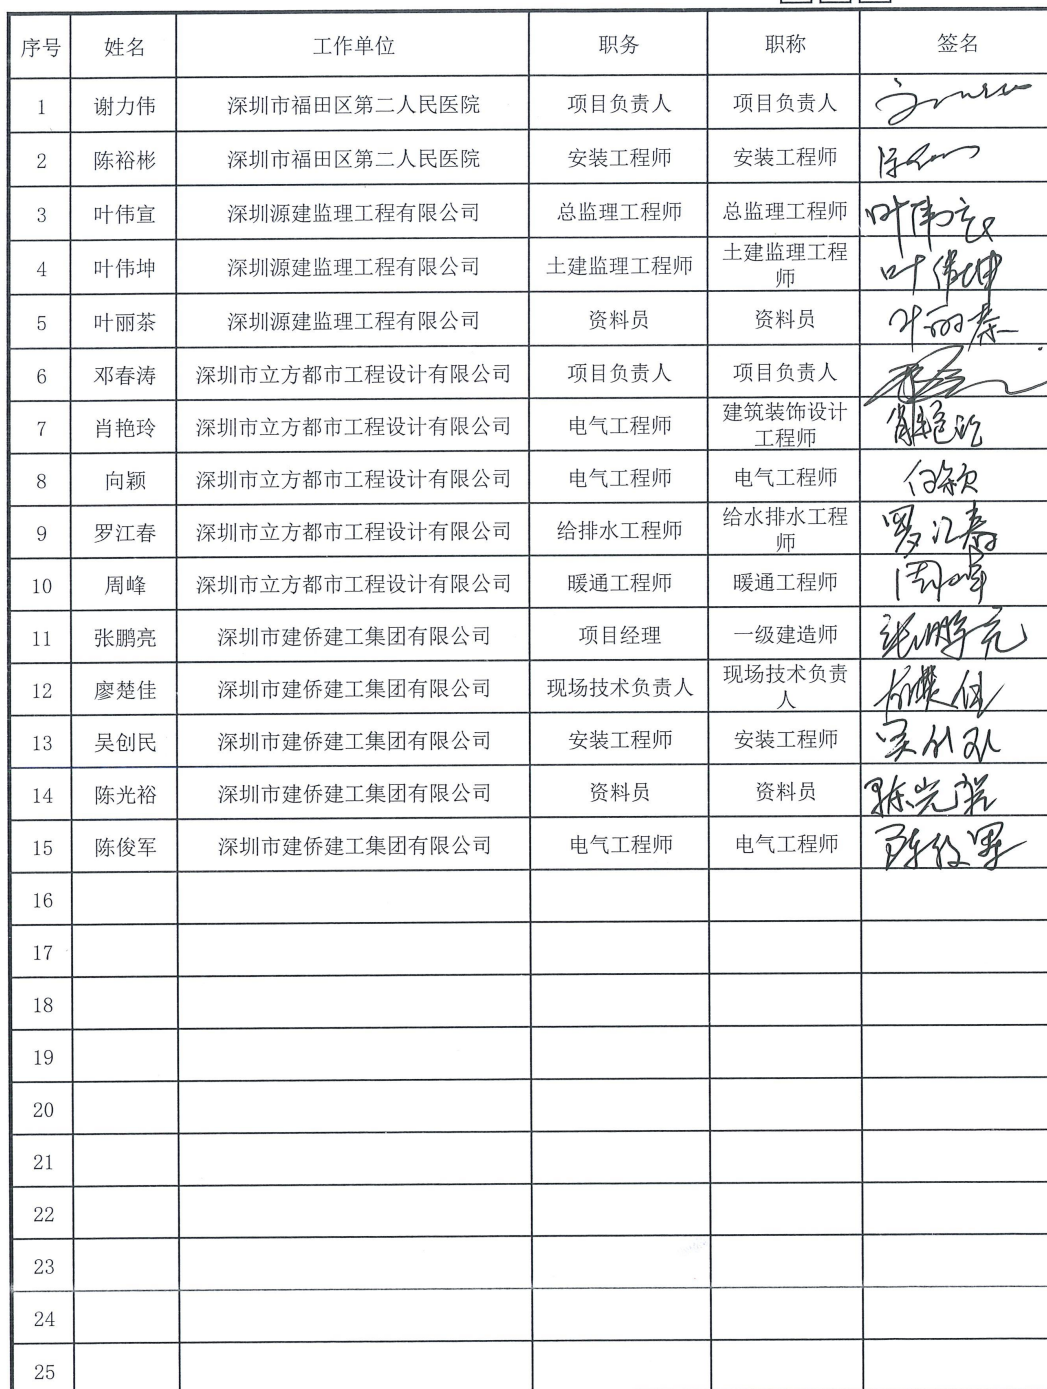 序号 姓名 工作单位 职务 职称 签名
1 谢力伟 深圳市福田区第二人民医院 项目负责人 项目负责人
2 陈裕彬 深圳市福田区第二人民医院 安装工程师 安装工程师
3 叶伟宣 深圳源建监理工程有限公司 总监理工程师 总监理工程师 叶伟宣
4 叶伟坤 深圳源建监理工程有限公司 土建监理工程师 土建监理工程 叶伟坤
师
5 叶丽茶 深圳源建监理工程有限公司 资料员 资料员 叶丽茶
6 邓春涛 深圳市立方都市工程设计有限公司 项目负责人 项目负责人
7 肖艳玲 深圳市立方都市工程设计有限公司 电气工程师 建筑装饰设计 肖艳玲
工程师
8 向颖 深圳市立方都市工程设计有限公司 电气工程师 电气工程师 向颖
9 罗江春 深圳市立方都市工程设计有限公司 给排水工程师 给水排水工程 罗江春
师
10 周峰 深圳市立方都市工程设计有限公司 暖通工程师 暖通工程师 周峰
11 张鹏亮 深圳市建侨建工集团有限公司 项目经理 一级建造师 张鹏亮
12 廖楚佳 深圳市建侨建工集团有限公司 现场技术负责人 现场技术负责 廖楚佳
人
13 吴创民 深圳市建侨建工集团有限公司 安装工程师 安装工程师 吴创民
14 陈光裕 深圳市建侨建工集团有限公司 资料员 资料员 陈光裕
15 陈俊军 深圳市建侨建工集团有限公司 电气工程师 电气工程师 陈俊军
16
17
18
19
20
21
22
23
24
25